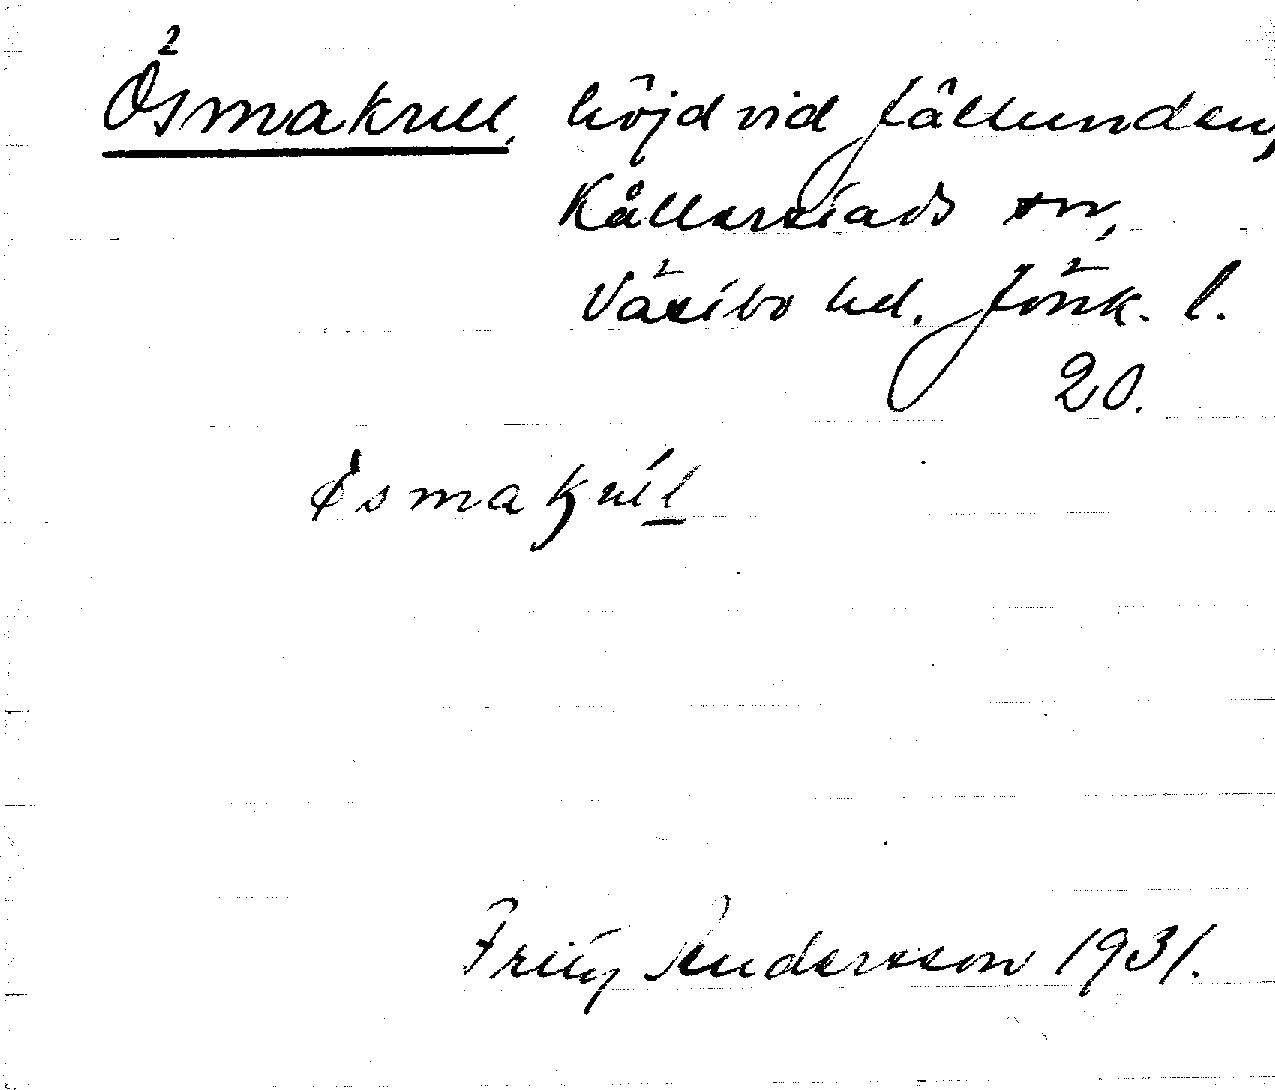 Ösmakull, höjd vid Fällunden,
Kållerstads sn,
Västbo hd. Jönk. l.
20.
Fritz Andersson 1931.